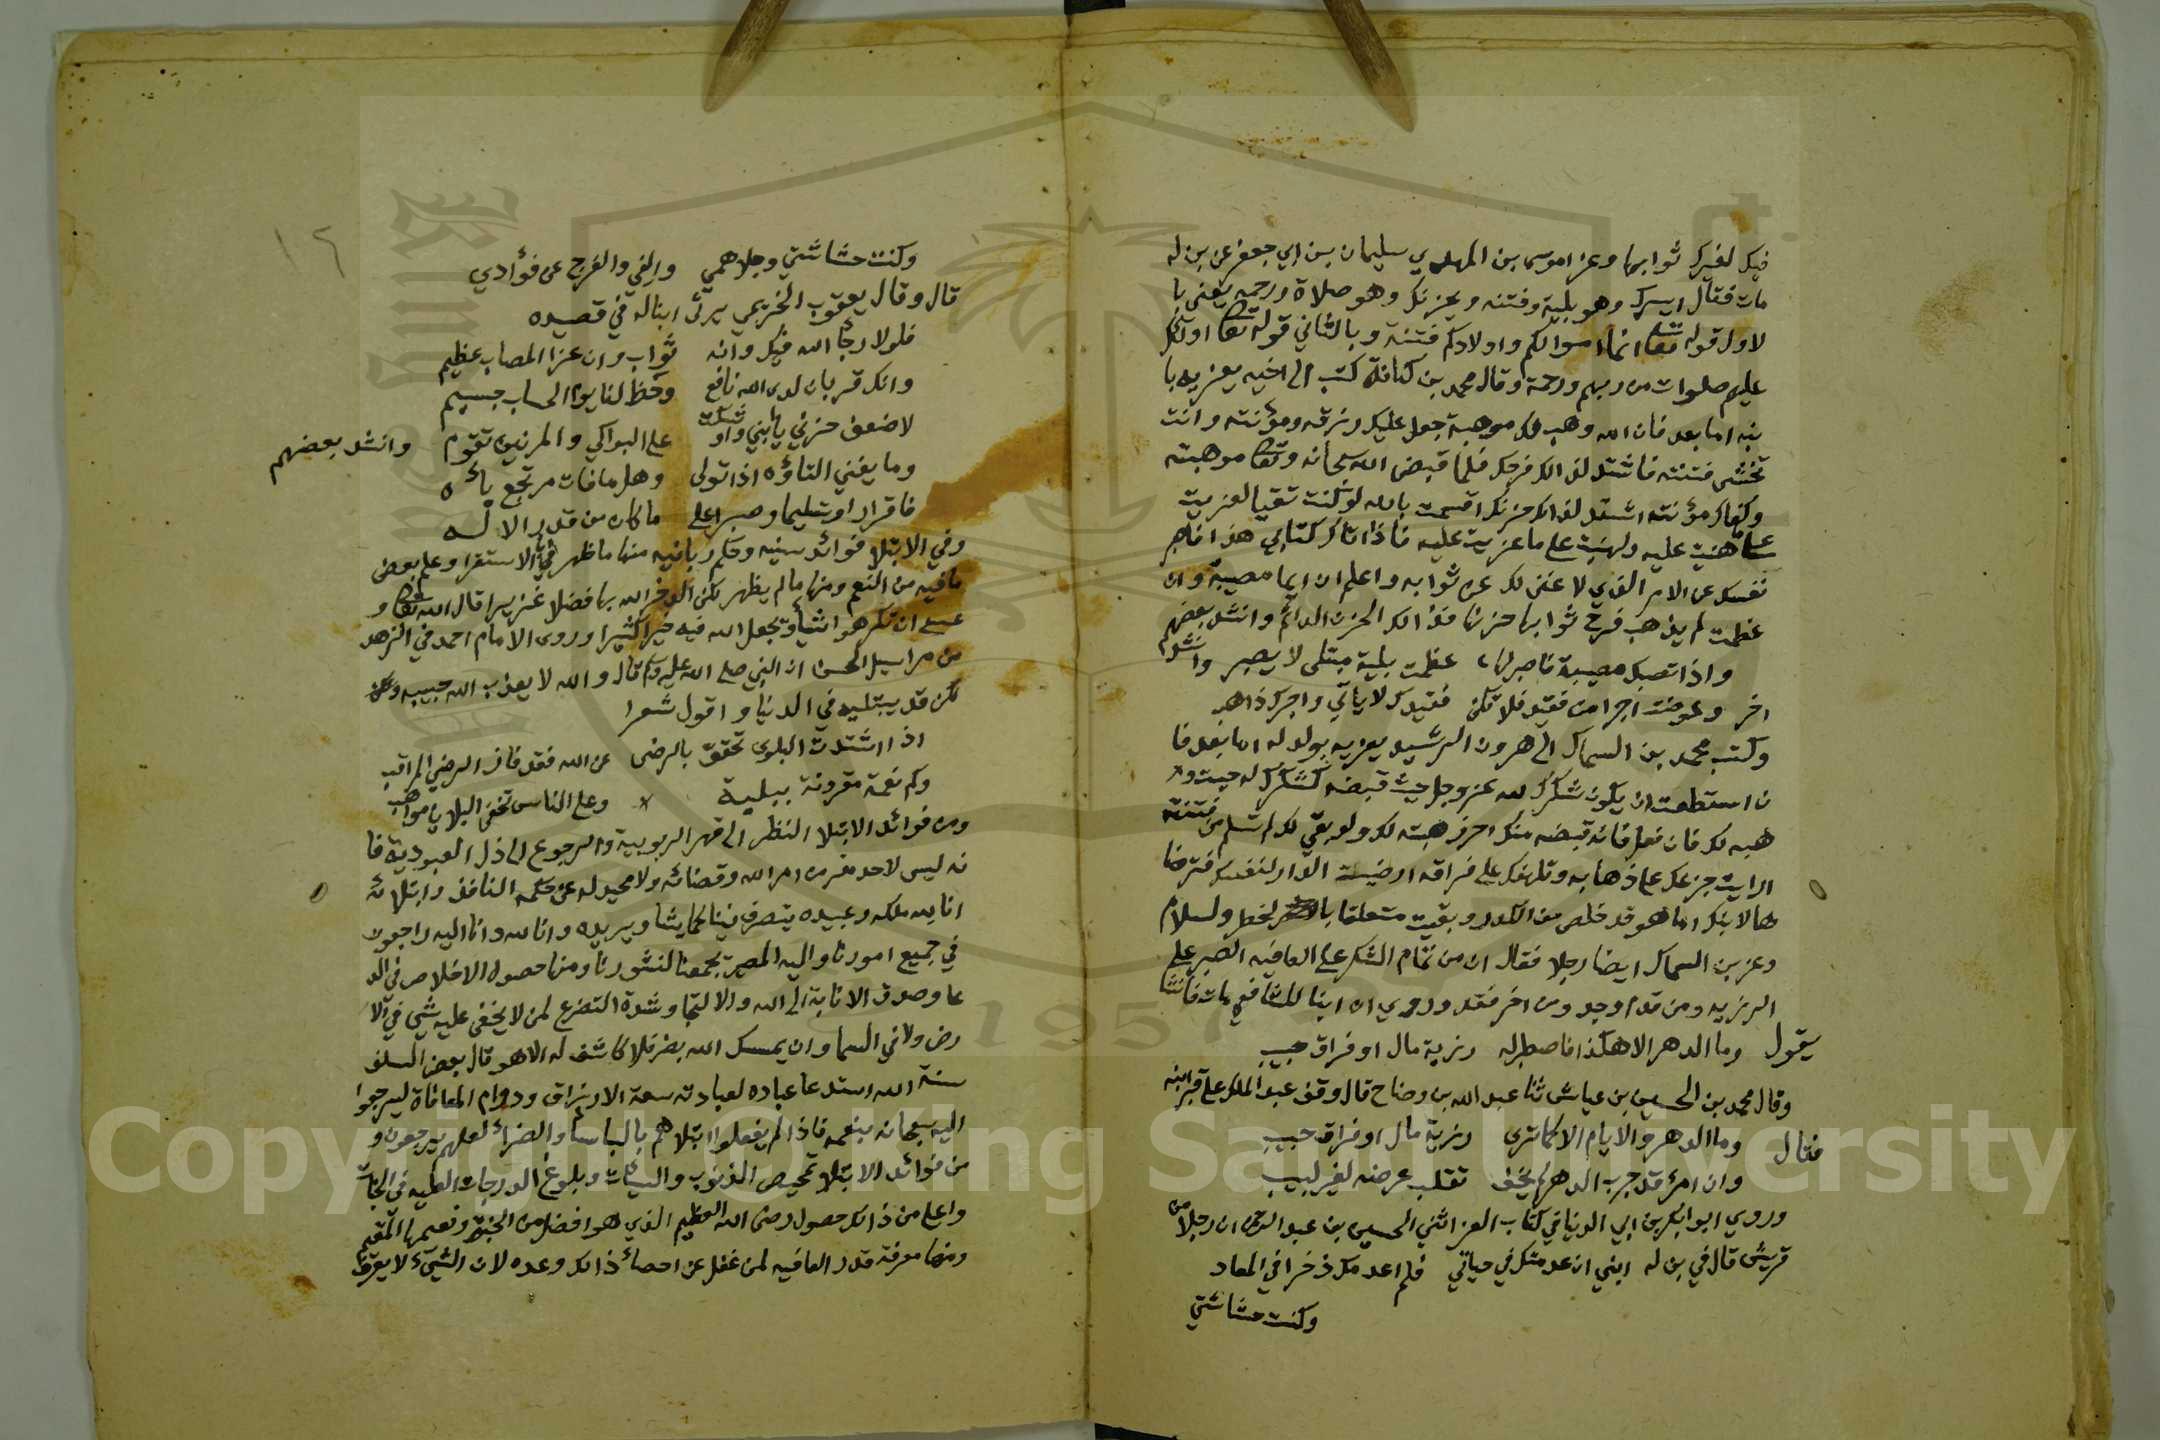 فيك لغيرك ثوابها وعزا موسى بن المهدي سليمان بن ابي جعفر عن بن له
مات فقال ايسرك وهو بلية وفتنه ويحزنك وهو صلاة ورحمه يعني با
لاول قوله تعا انما اموالكم واولادكم فتنة وبالثاني قوله تعا اولئك
عليهم صلوات من ربهم ورحمة وقال محمد بن كناسة كتب الى اخيه يعزيه با
بنه اما بعد فان الله وهب لك موهبة جعل عليك رزقه ومؤنته وانت
تخشى فتنته فاشتد لذالك فرحك فلما قبض الله سبحانه وتعا موهبته
وكفاك مؤنته اشتد لذالك حزنك اقسمت بالله لو كنت تقيا لعزيت
على ما هنيت عليه ولهنيت على ما عزيت عليه فاذا اتاك كتابي هذا فاصبر
نفسك عن الامر الذي لا غنى لك عن ثوابه واعلم ان ايما مصيبة وان
عظمت لم يذهب فرح ثوابها حزنها فذالك الحزن الدائم وانشد بعضهم
واذا تصبك مصيبة فاصبر لها عظمت بلية مبتلى لا يصبر وانشد
اخر وعوضت اجرا من فقيد فلا تكن فقيدك لا ياتي واجرك ذاهب
وكتب محمد بن السماك الى هرون الرشيد يعزيه بولد له اما بعد فا
ن استطعت ان يكون شكرك لله عز وجل حيث قبضه كشكرك له حيث و
هبه لك فان فعل فانه قبضه منك احرز هبته لك ولو بقي لك لم تسلم من فتنته
ارايت جزعك على ذهابه وتلهفك على فراقه ارضيت الدار لنفسك فترضا
ها لابنك اما هو قد خلص من الكدر وبقيت متعلقا بالخطر ولسلام
وعز بن السماك ايضا رجلا فقال ان من تمام الشكر على العافيه الصبر على
الرزيه ومن قدم وجد ومن اخر فقد وروي ان ابنا للشافعي مات فانشا
يقول وما الدهر الا هكذا فاصطبر له رزية مال او فراق حبيب
وقال محمد بن الحسين بن عياش ثنا عبد الله بن وضاح قال وقف عبد الملك على قبر ابنه
فقال وما الدهر والايام الا كما ترى رزية مال او فراق حبيب
وان امرئ قد جرب الدهر لم يخف تقلب عرضه لغير لبيب
وروي ابوا بكر بن ابي الدنيا في كتاب العزا ثني الحسين بن عبد الرحمن ان رجلا من
قريش قال في بن له ابني ان عدمتك في حياتي فلم اعدمك ذخرا في المعاد
وكنت حشاشتي
١٢
وكنت حشاشتي وجلا همي والفي والفرج عن فؤادي
قال وقال يعقوب الخريمي يرثى ابنا له في قصيده
فلولا رجا الله فيك وانه ثواب وان عزا المصاب عظيم
وانك قربان لدى الله نافع وحظ لنا يوم الحساب جسيم
لاضعف حزني يا بني واوشكت على البواكي والمرنين تقوم وانشد بعضهم
وما يغني التاوه اذا تولى وهل ما فات مرتجع بآه
فاقرارا وتسليما وصبرا على ما كان من قدر الاله
وفي الابتلا فوائد سنيه وحكم ربانيه منها ما ظهر في الاستقرا وعلم بعض
ما فيه من النعم ومنها ما لم يظهر لكن الدخر الله بها فضلا غزيرا قال الله تعا و
عسى ان تكرهوا شيأ ويجعل الله فيه خيرا كثيرا وروى الامام احمد في الزهد
من مراسيل الحسن ان النبي صلى الله عليه وسلم قال والله لا يعذب الله حبيبه ولكن
لكن قد يبتليه في الدنيا واقول شعرا
اذا اشتدت البلوى تحقق بالرضى عن الله فقد فاز الرضي المراقب
وكم نعمة مقرونة ببلية * وعلى الناس تخفى البلايا مواهب
ومن فوائد الابتلا النظر الى قهر الربوبية والرجوع الى ذل العبودية فا
نه ليس لاحد مفر من امر الله وقضائه ولا محيد له عن حكمه النافذ وابتلائه
انا لله ملكه وعبيده يتصرف فينا كما يشا ويريده وانا لله وانا اليه راجعون
في جميع امورنا واليه المصير بجمعنا لنشورنا ومنها حصول الاخلاص في الد
عا وصدق الانابة الى الله والالتجا وشدة التضرع لمن لا يخفى عليه شي في الا
رض ولا في السما وان يمسسك الله بضر فلا كاشف له الا هو قال بعض السلف
سنة الله استدعا عباده لعبادته سعة الارزاق ودوام المعافاة ليرجعوا
اليه سبحانه بنعمه فاذا لم يفعلوا ابتلاهم بالباساء والضراء لعلهم يرجعون و
من فوائد الابتلا تمحيص الذنوب والسيئات وبلوغ الدرجات العليه في الجنات
واعلى من ذالك حصول رضى الله العظيم الذي هو افضل من الجنة ونعيمها المقيم
ومنها معرفة قدر العافيه لمن غفل عن احصاء ذالك وعده لان الشيء لا يعرف
Copyright © King Saud University
1957